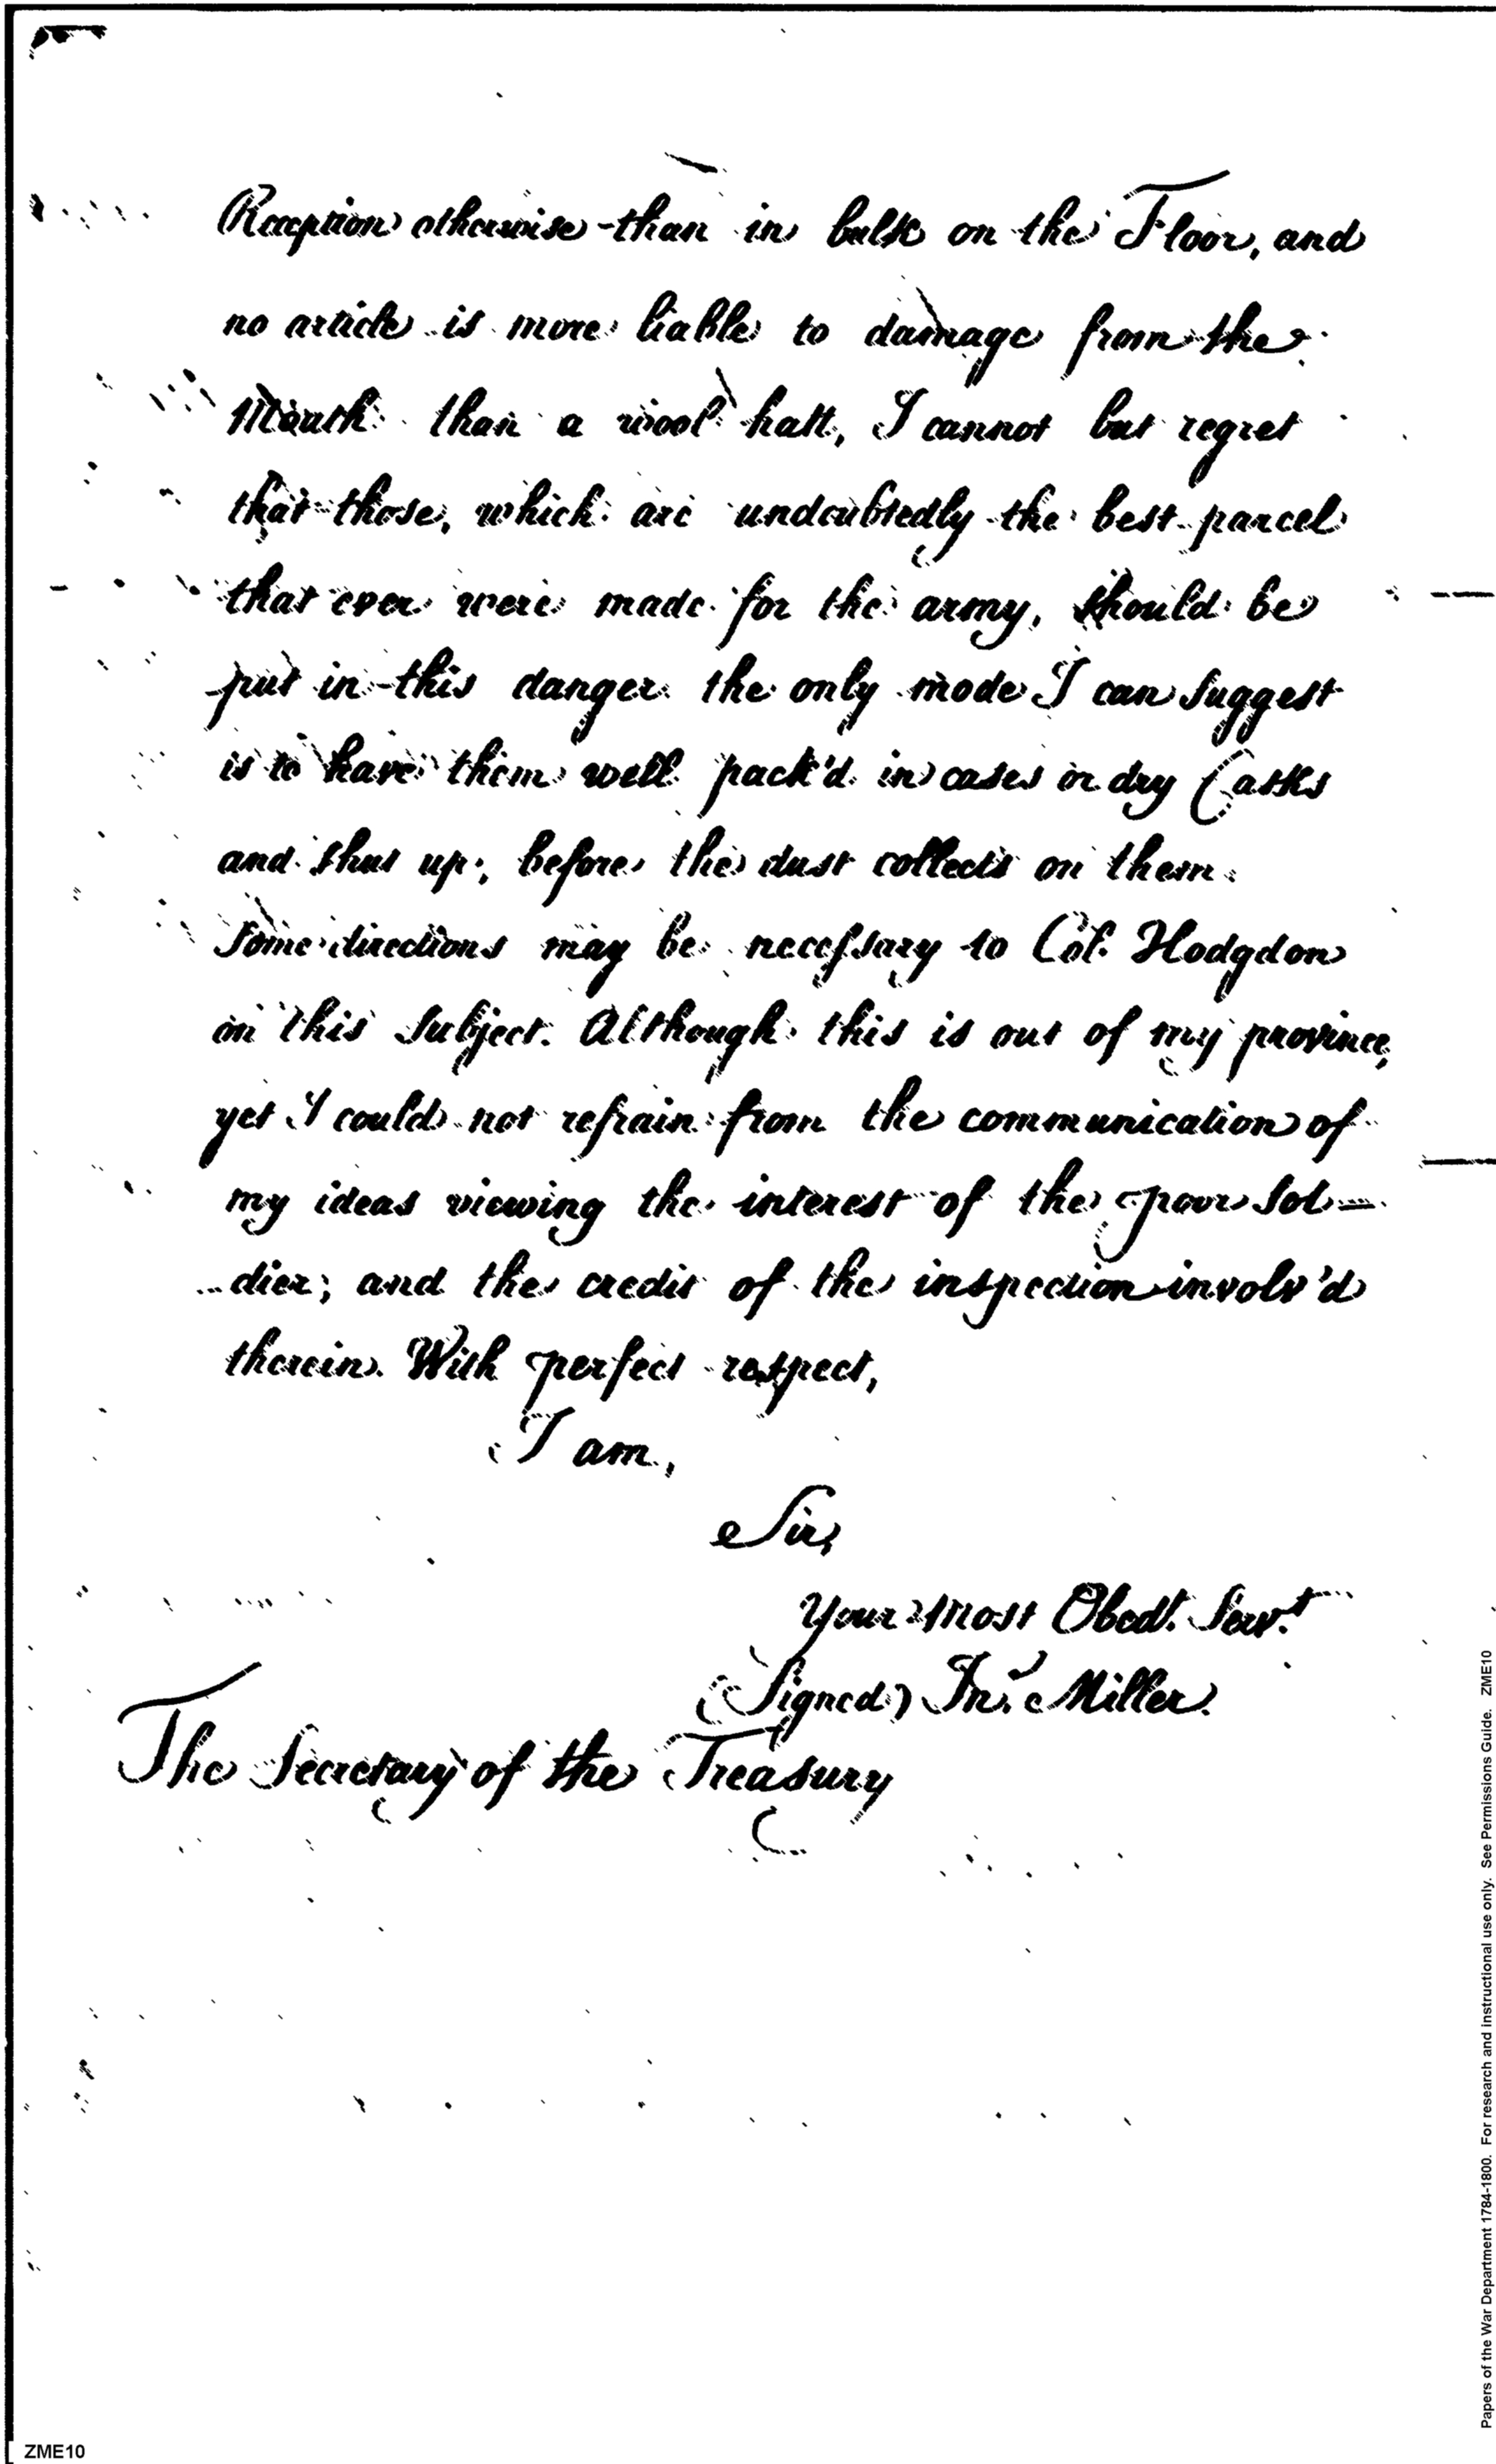 Reception otherwise than in bulk on the Floor, and
no article is more liable to damage from the
Mouth than a wool hatt, I cannot but regret
that those, which are undoubtedly the best parcel
that ever were made for the army, should be
put in this danger. the only mode I can suggest
is to have them well pack'd in cases or dry Casks
and shut up, before the dust collects on them.
Some directions may be necessary to Col. Hodgdon
on this subject. Although this is out of my province,
yet I could not refrain from the communication of
my ideas viewing the interest of the poor Sol=
dier; and the credit of the inspection involv'd
therein. With perfect respect,
I am,
Sir,
Your Most Obedt. Servt.
(Signed) Jno. Miller.
The Secretary of the Treasury
ZME10
Papers of the War Department 1784-1800. For research and instructional use only. See Permissions Guide. ZME10